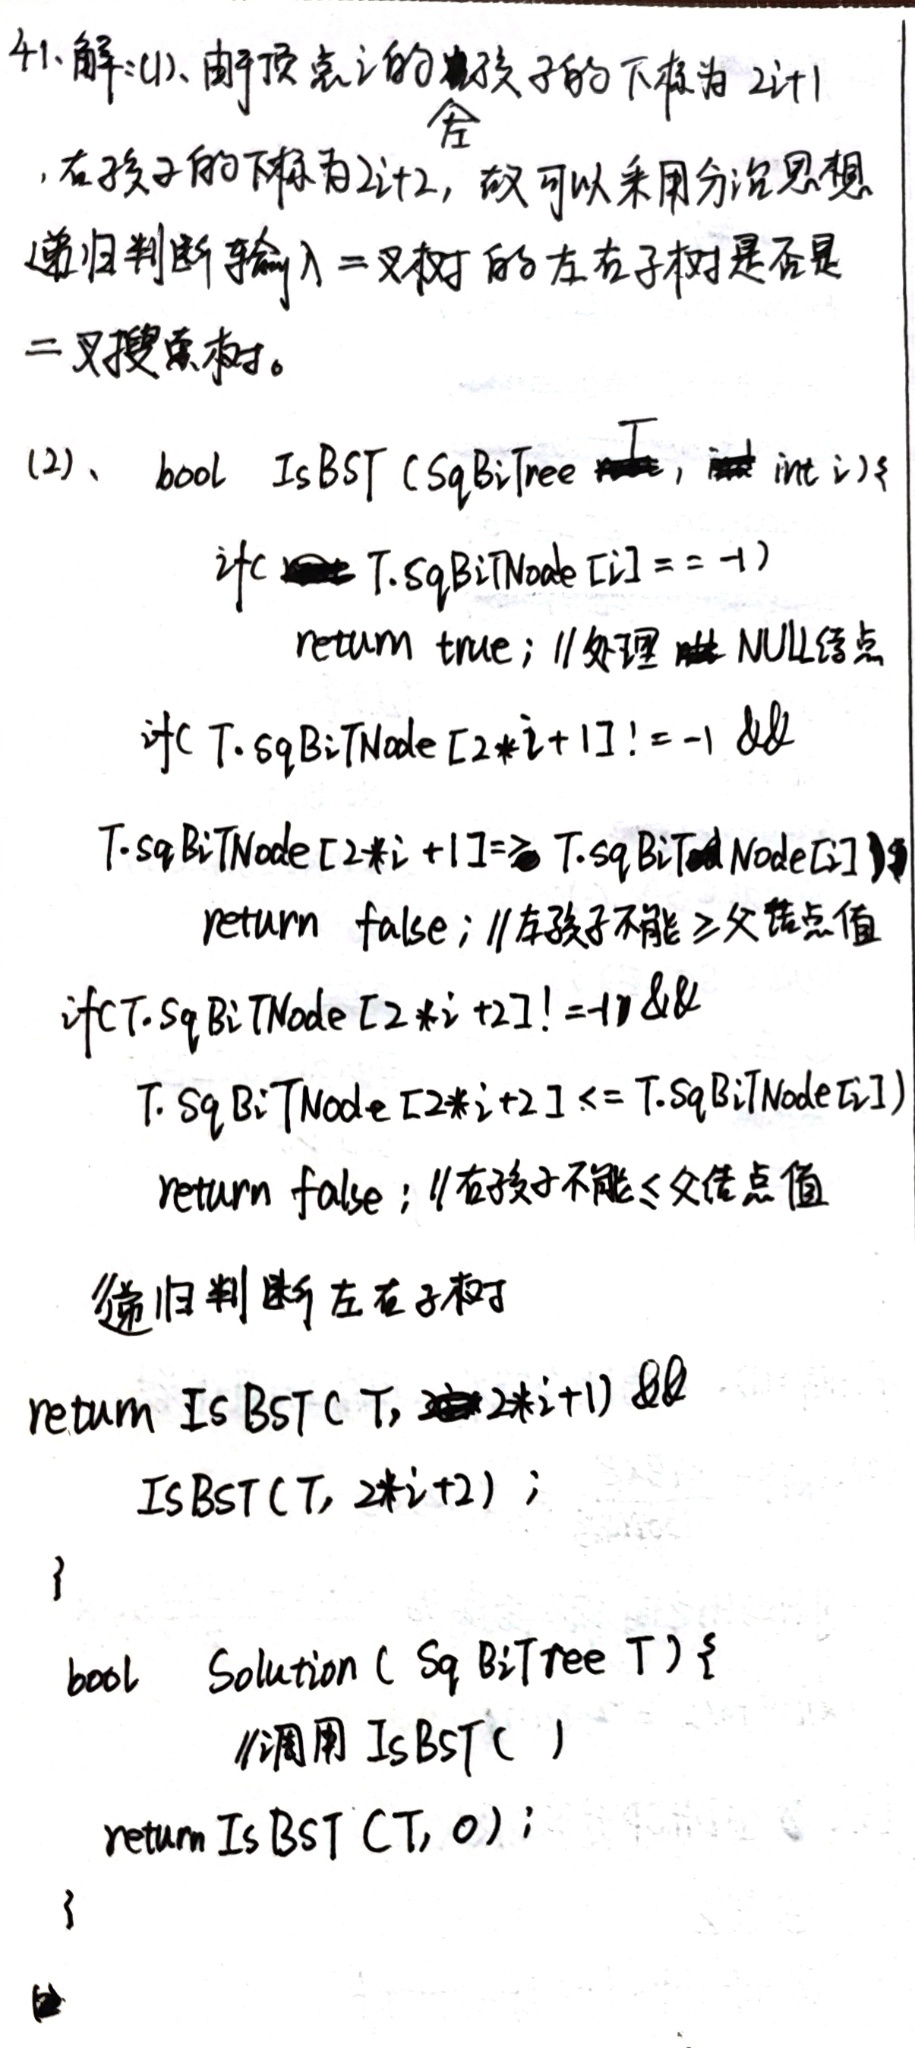 41、解:(1)、由于顶点i的左孩子的下标为 2i+1
,右孩子的下标为2i+2, 故可以采用分治思想
递归判断输入二叉树的左右子树是否是
二叉搜索树。
(2)、 bool IsBST (SqBiTree T, int i){
if( T.SqBiTNode[i] == -1)
return true; //处理 NULL结点
if( T.SqBiTNode[2*i+1] != -1 &&
T.SqBiTNode[2*i+1]=> T.SqBiTNode[i])
return false; //左孩子不能≥父结点值
if(T.SqBiTNode[2*i+2] != -1 &&
T.SqBiTNode[2*i+2] <= T.SqBiTNode[i])
return false; //右孩子不能≤父结点值
//递归判断左右子树
return IsBST(T, 2*i+1) &&
IsBST(T, 2*i+2) ;
}
bool Solution ( SqBiTree T) {
//调用 IsBST( )
return IsBST (T, 0) ;
}